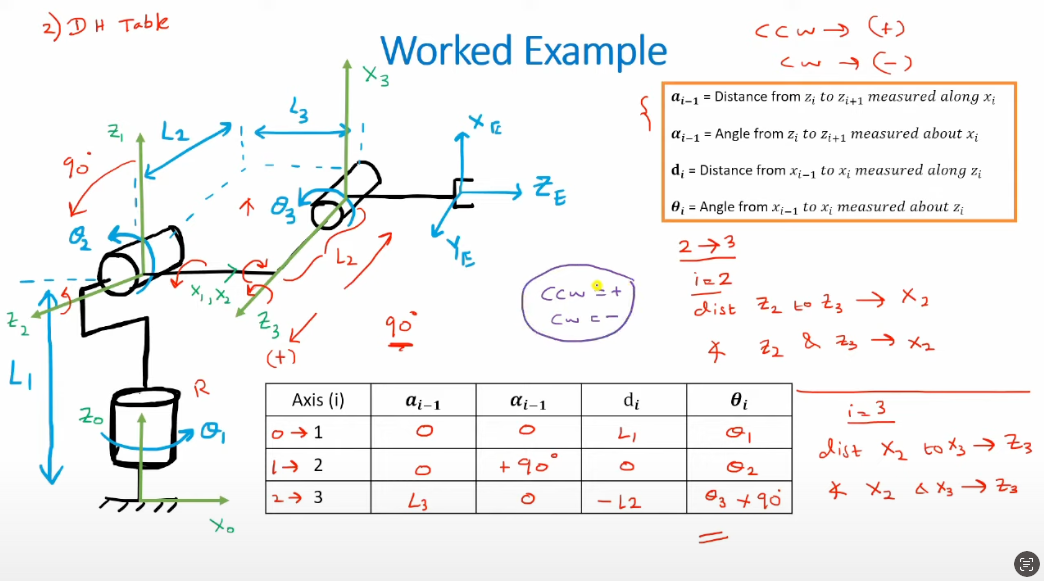 2) DH Table
Worked Example
CCW → (+)
CW → (-)
a_{i-1} = Distance from z_i to z_{i+1} measured along x_i
α_{i-1} = Angle from z_i to z_{i+1} measured about x_i
d_i = Distance from x_{i-1} to x_i measured along z_i
θ_i = Angle from x_{i-1} to x_i measured about z_i
X_3
L_3
L_2
Z_1
90°
X_E
Z_E
Y_E
θ_3
θ_2
L_2
X_1, X_2
Z_2
Z_3
(+)
90°
L_1
R
Z_0
θ_1
X_0
CCW = +
CW = -
2 → 3
i=2
dist Z_2 to Z_3 → X_2
∡ Z_2 & Z_3 → X_2
i=3
dist X_2 to X_3 → Z_3
∡ X_2 & X_3 → Z_3
Axis (i) a_{i-1} α_{i-1} d_i θ_i
0 → 1 0 0 L_1 θ_1
1 → 2 0 +90° 0 θ_2
2 → 3 L_3 0 -L2 θ_3 + 90°